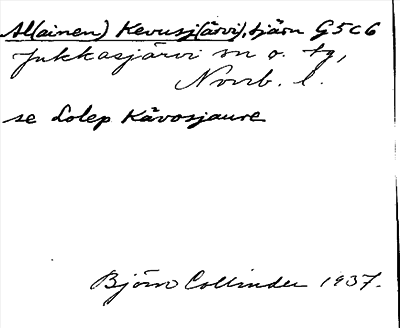 Al(ainen) Kevusj(ärvi), tjärn G5c6
Jukkasjärvi sn o. tg,
Norrb. l.
se Lolep Kåvosjaure
Björn Collinder 1937.